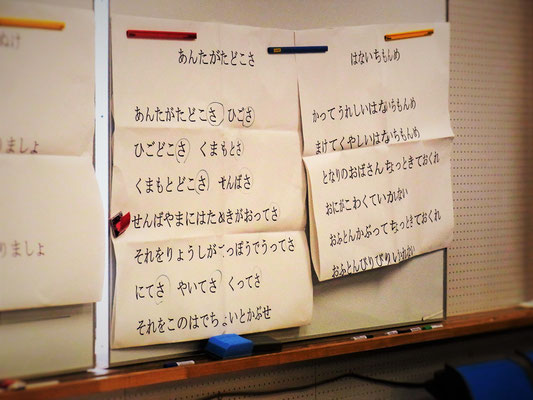 ぬけ
りましょ
りましょ
あんたがたどこさ
あんたがたどこさ ひごさ
ひごどこさ くまもとさ
くまもとどこさ せんばさ
せんばやまにはたぬきがおってさ
それをりょうしがてっぽうでうってさ
にてさ やいてさ くってさ
それをこのはでちょいとかぶせ
はないちもんめ
かってうれしいはないちもんめ
まけてくやしいはないちもんめ
となりのおばさんちょっときておくれ
おにがこわくていかない
おふとんかぶってちょっときておくれ
おふとんびりびりいかれない